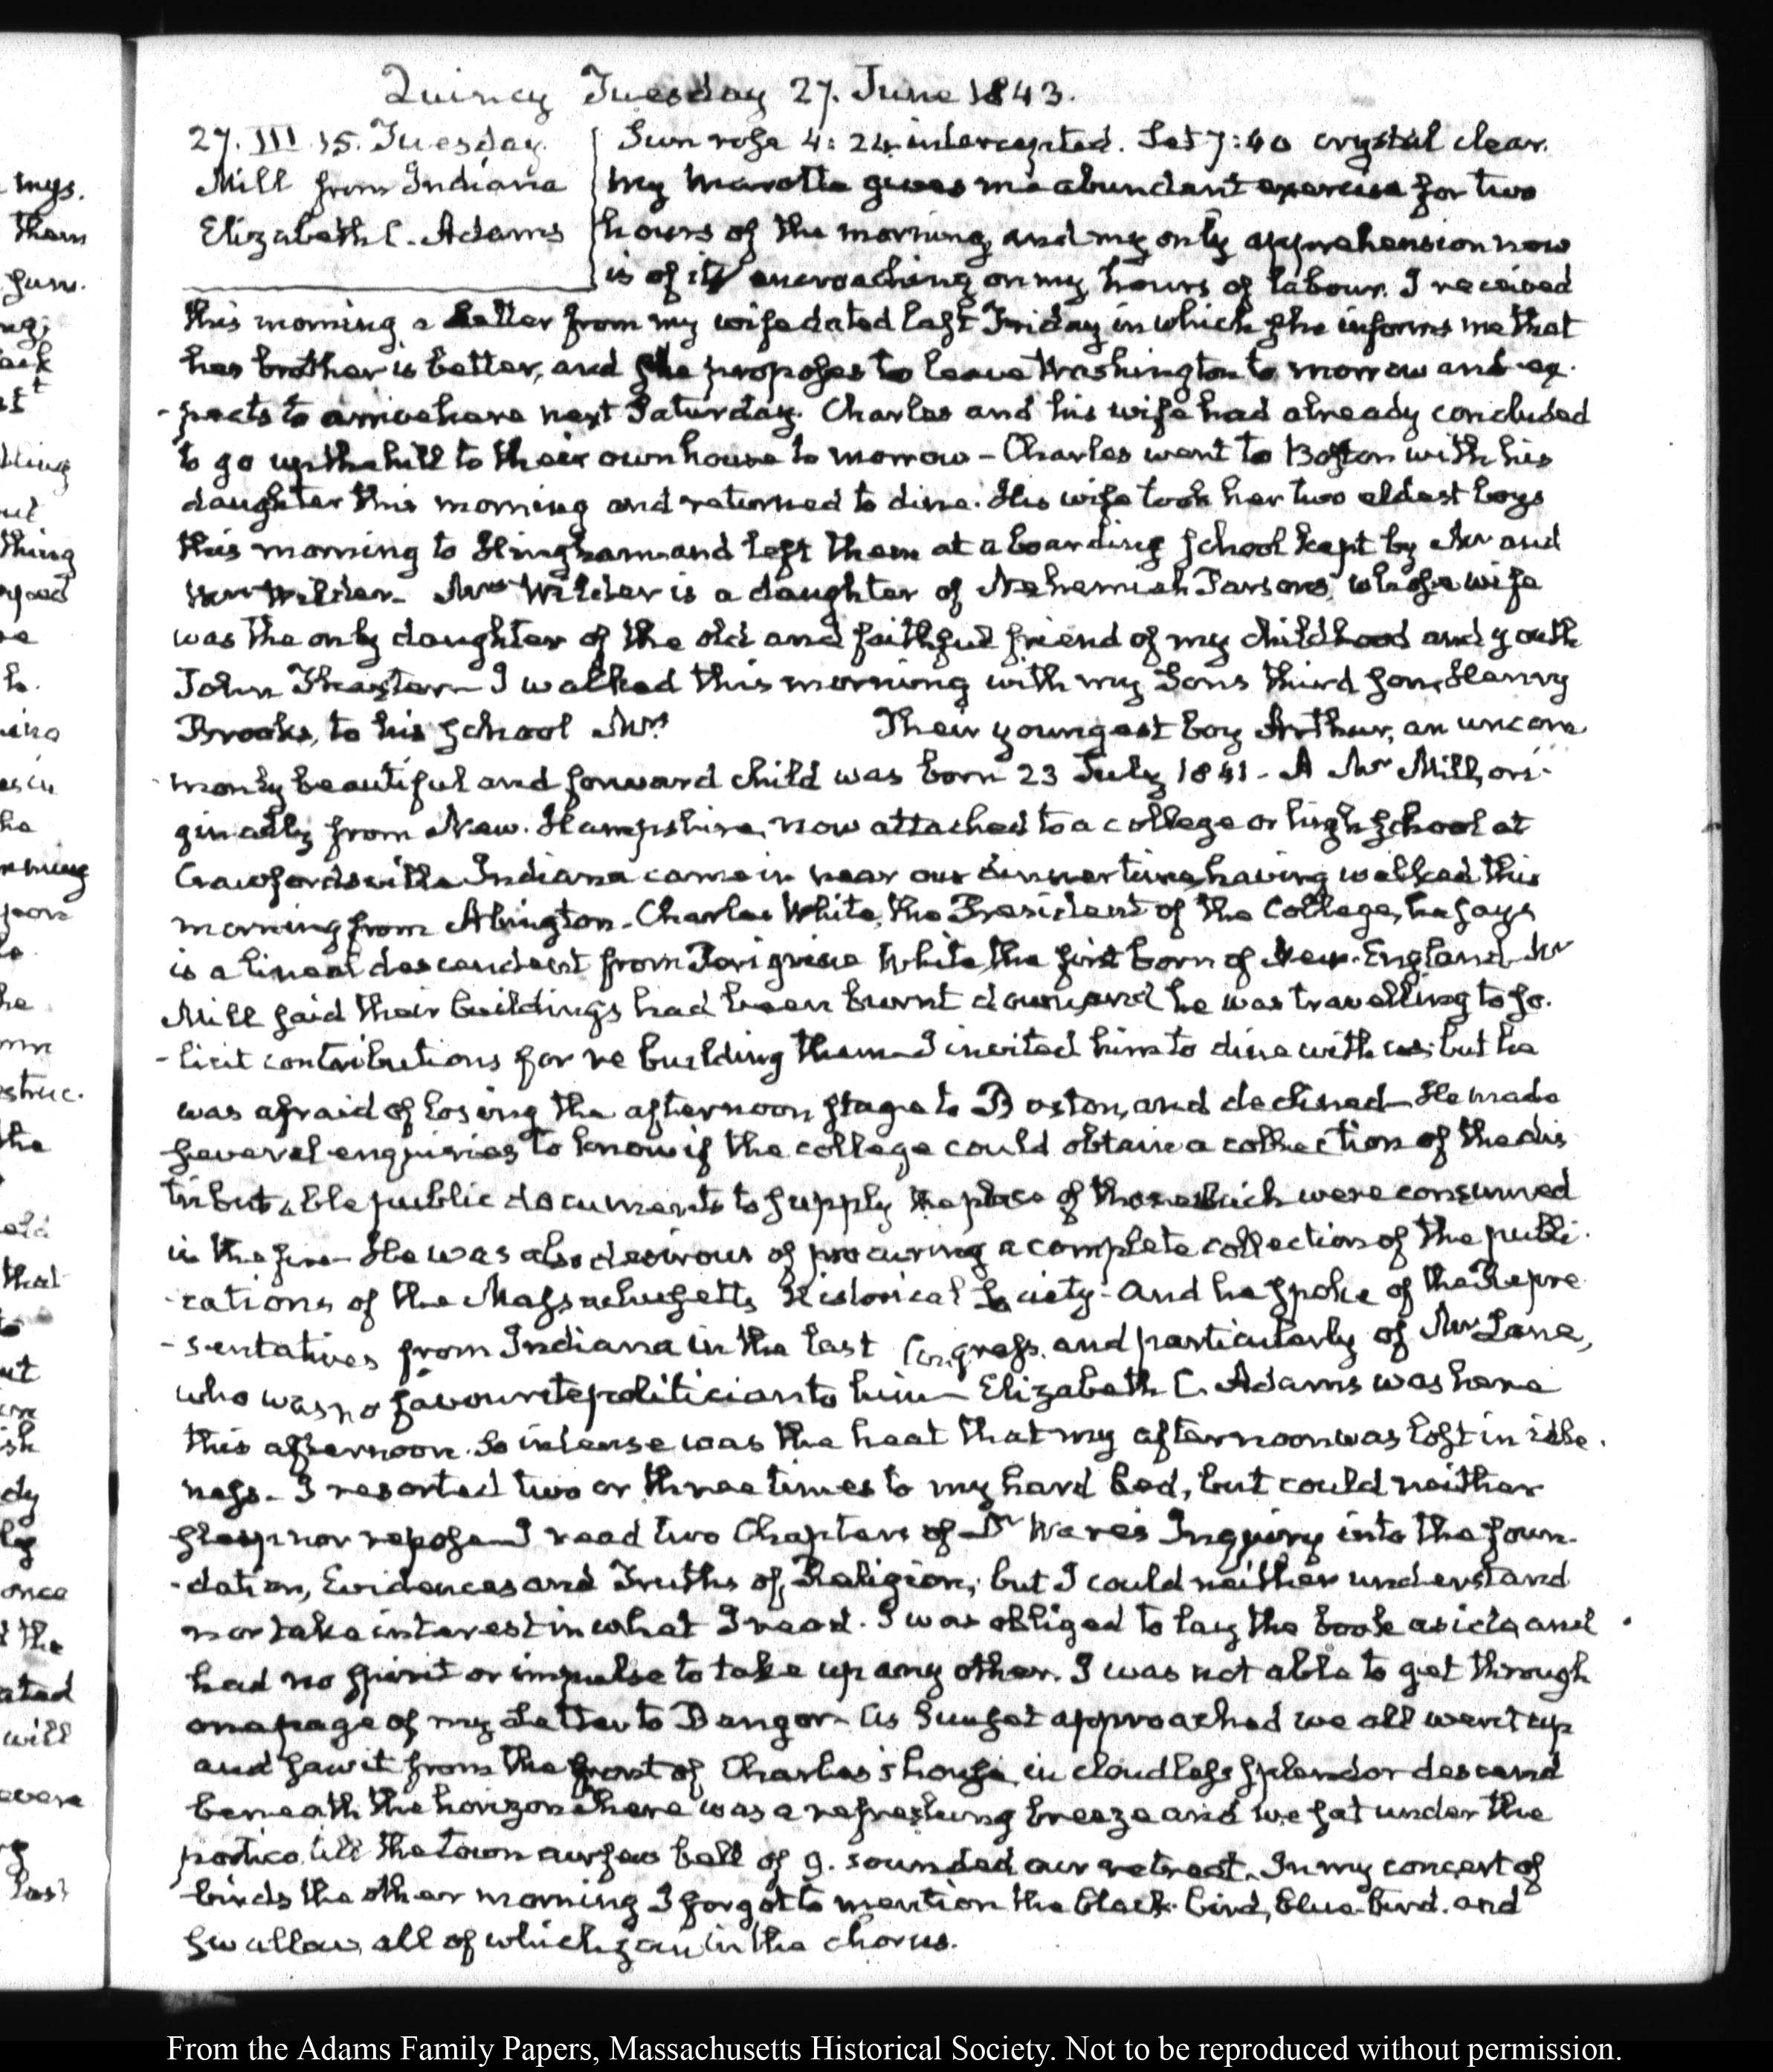 Quincy Tuesday 27. June 1843.
27. III. 15. Tuesday.
Mill from Indiana
Elizabeth C. Adams
Sun rose 4:24 intercepted. Set 7:40 crystal clear.
My Marotte gives me abundant exercise for two
hours of the morning, and my only apprehension now
is of its encroaching on my hours of labour. I received
this morning a Letter from my wife dated last Friday in which she informs me that
her brother is better, and she proposes to leave Washington to morrow and ex-
-pects to arrive here next Saturday. Charles and his wife had already concluded
to go up the hill to their own house to morrow - Charles went to Boston with his
daughter this morning and returned to dine. His wife took her two eldest boys
this morning to Hingham and left them at a boarding school kept by Mr and
Mrs Wilder. Mrs Wilder is a daughter of Nehemiah Parsons, whose wife
was the only daughter of the old and faithful friend of my childhood and youth
John Thaxter - I walked this morning with my Sons third son, Henry
Brooks, to his school Mrs Their youngest boy Arthur, an uncom
-monly beautiful and forward child was born 23 July 1841 - A Mr Mill, ori-
ginally from New-Hampshire, now attached to a college or high school at
Crawfordsville Indiana came in near our dinner time, having walked this
morning from Abington. Charles White, the President of the College, he says
is a lineal descendant from Perigrine White, the first born of New-England. Mr
Mill said their buildings had been burnt down, and he was travelling to so-
-licit contributions for re building them - I invited him to dine with us; but he
was afraid of losing the afternoon stage to Boston, and declined - He made
several enquiries to know if the college could obtain a collection of the dis
tributable public documents to supply the place of those which were consumed
in the fire - He was also desirous of procuring a complete collection of the publi-
-cations of the Massachusetts Historical Society - And he spoke of the Repre
-sentatives from Indiana in the last Congress, and particularly of Mr Lane,
who was no favourite politician to him - Elizabeth C. Adams was here
this afternoon. So intense was the heat that my afternoon was lost in idle-
ness - I resorted two or three times to my hard bed, but could neither
sleep nor repose - I read two Chapters of Dr Ware's Inquiry into the foun-
-dation, Evidences and Truths of Religion; but I could neither understand
nor take interest in what I read. I was obliged to lay the book aside, and
had no spirit or impulse to take up any other. I was not able to get through
one page of my Letter to Bangor - As Sunset approached we all went up
and saw it from the front of Charles's house, in cloudless splendor descend
beneath the horizon there was a refreshing breeze and we sat under the
portico till the town curfew bell of 9. sounded our retreat. In my concert of
birds the other morning I forgot to mention the black-bird, blue-bird. and
swallow, all of which join in the chorus.
From the Adams Family Papers, Massachusetts Historical Society. Not to be reproduced without permission.